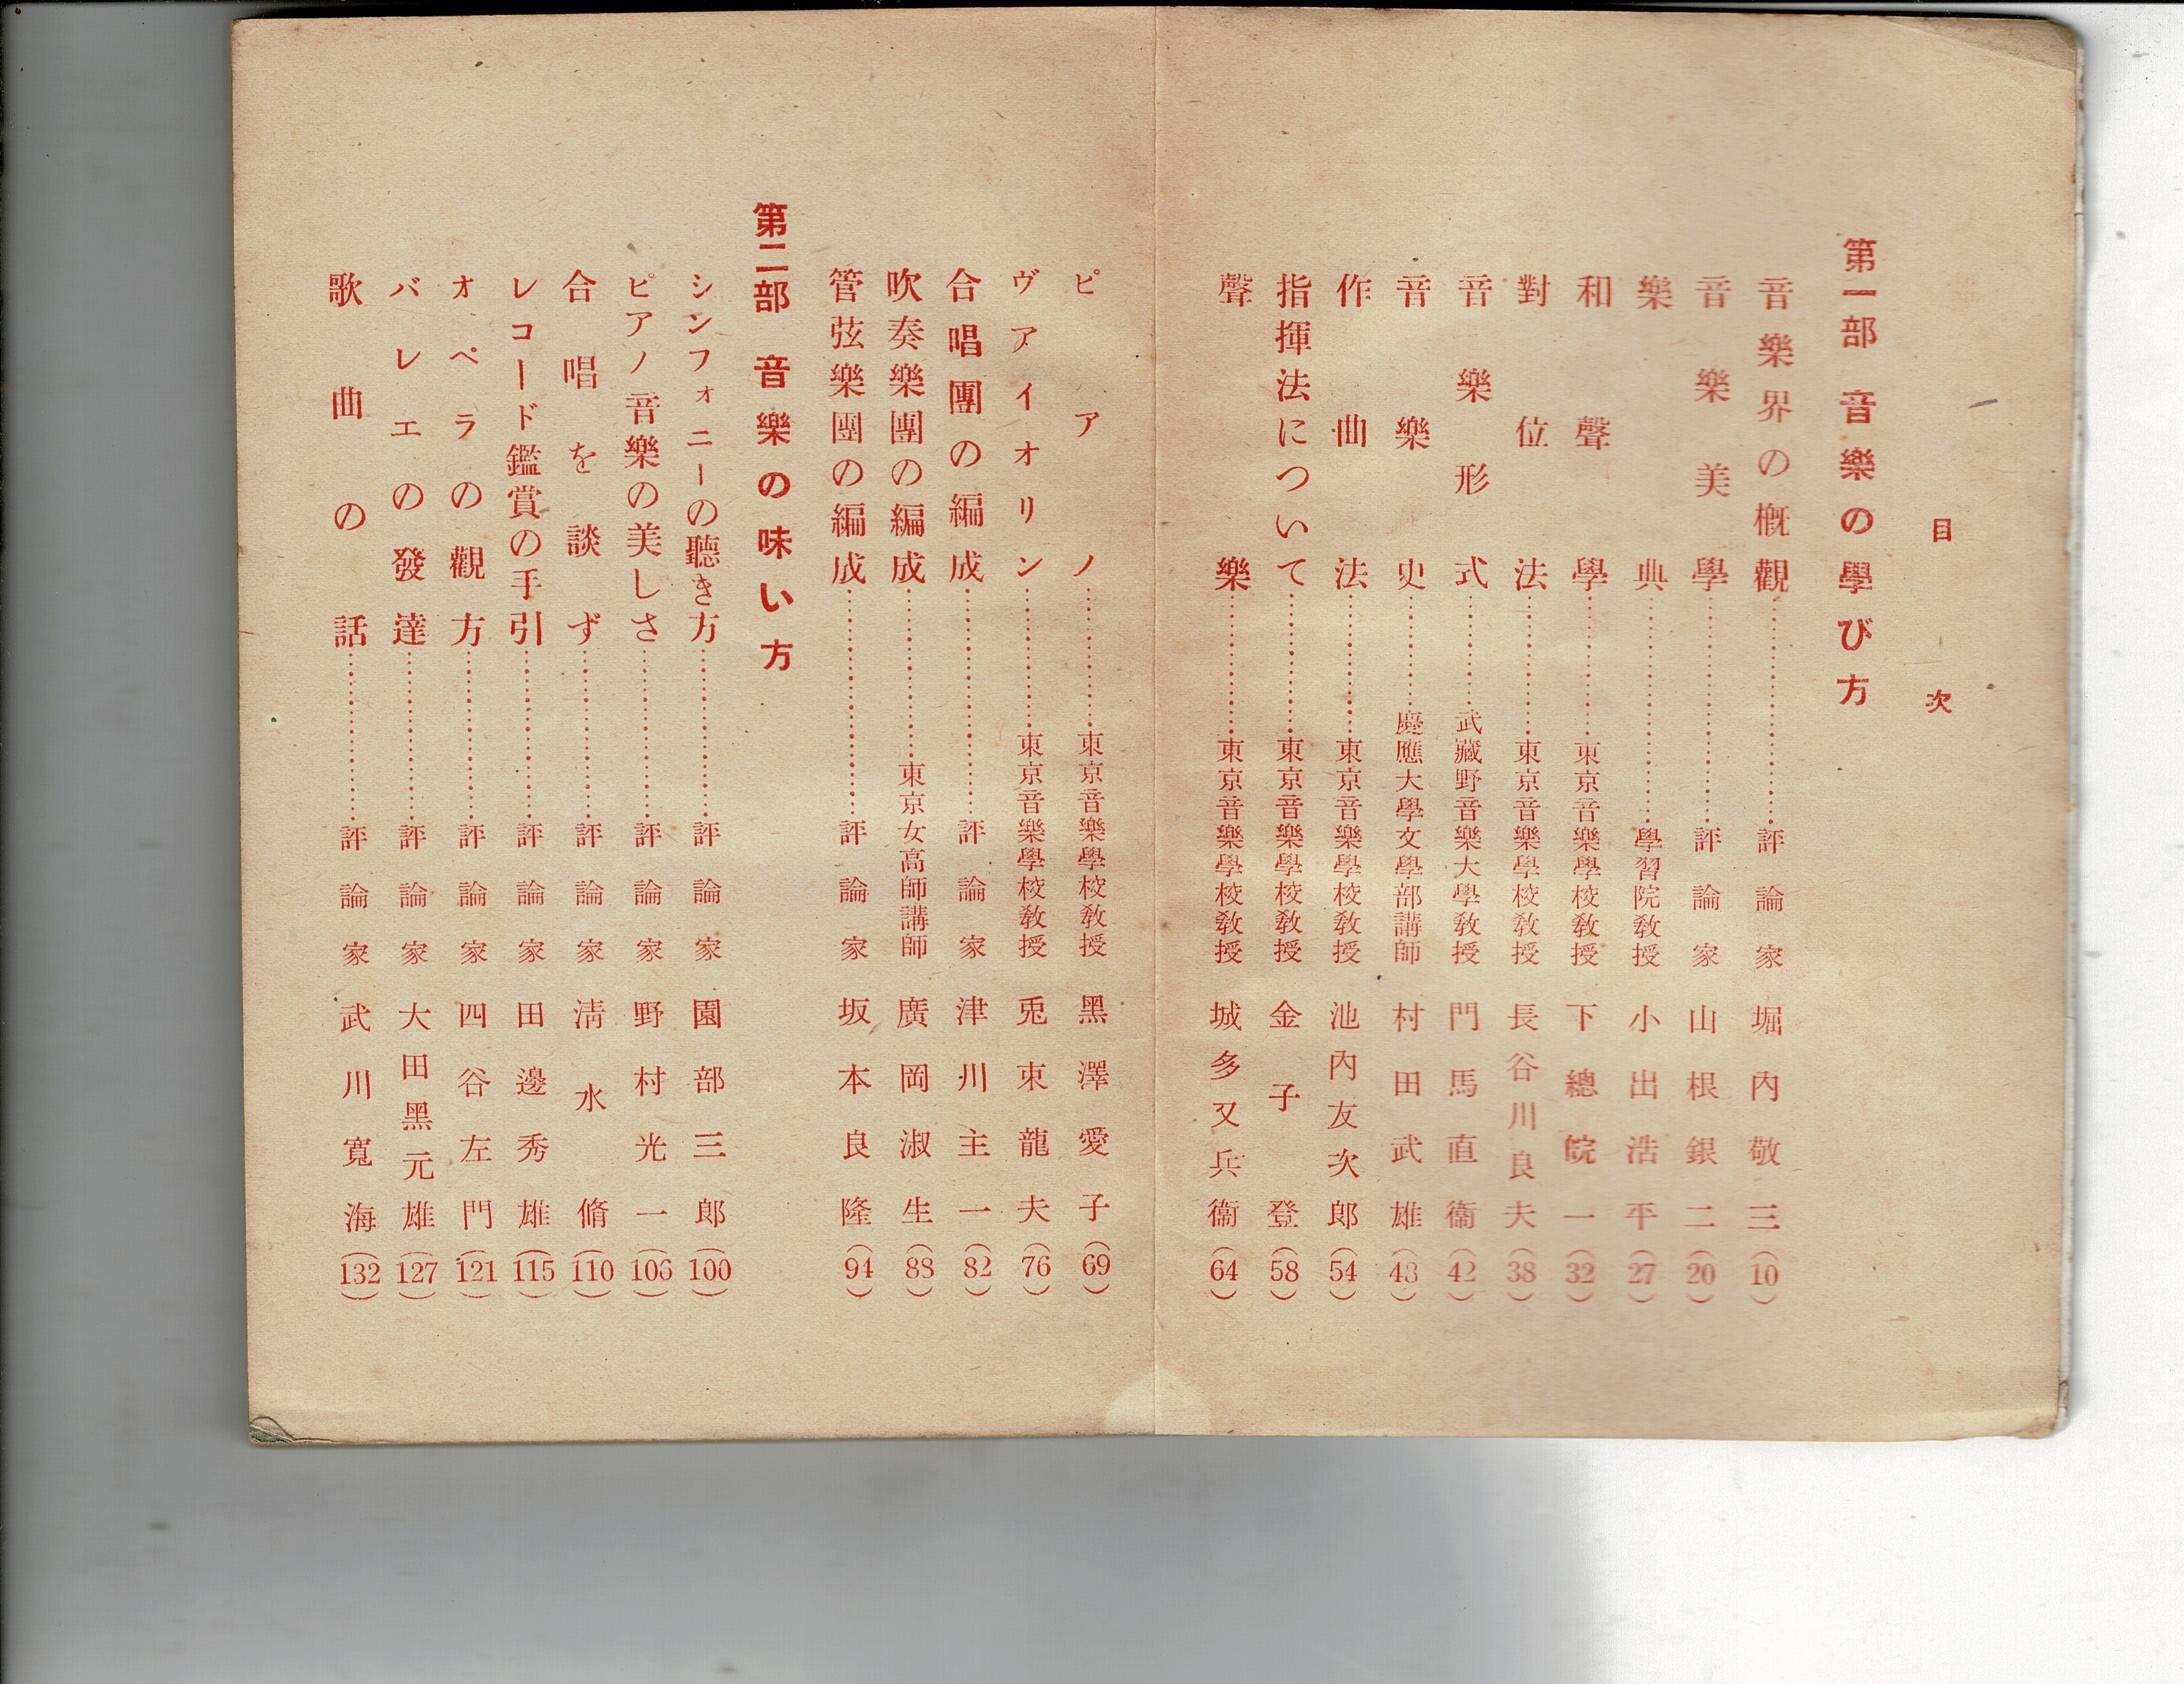 目次
第一部 音樂の學び方
音樂界の概觀…………評論家 堀内敬三(10)
音樂美學…………評論家 山根銀二(20)
樂典…………學習院教授 小出浩平(27)
和聲學…………東京音樂學校教授 下總皖一(32)
對位法…………東京音樂學校教授 長谷川良夫(38)
音樂形式…………武藏野音樂大學教授 門馬直衞(42)
音樂史…………慶應大學文學部講師 村田武雄(48)
作曲法…………東京音樂學校教授 池内友次郎(54)
指揮法について…………東京音樂學校教授 金子登(58)
聲樂…………東京音樂學校教授 城多又兵衞(64)
ピアノ…………東京音樂學校教授 黑澤愛子(69)
ヴアイオリン…………東京音樂學校教授 兎束龍夫(76)
合唱團の編成…………評論家 津川主一(82)
吹奏樂團の編成…………東京女高師講師 廣岡淑生(88)
管弦樂團の編成…………評論家 坂本良隆(94)
第二部 音樂の味い方
シンフォニーの聽き方…………評論家 園部三郎(100)
ピアノ音樂の美しさ…………評論家 野村光一(106)
合唱を談ず…………評論家 清水脩(110)
レコード鑑賞の手引…………評論家 田邊秀雄(115)
オペラの觀方…………評論家 四谷左門(121)
バレエの發達…………評論家 大田黑元雄(127)
歌曲の話…………評論家 武川寬海(132)